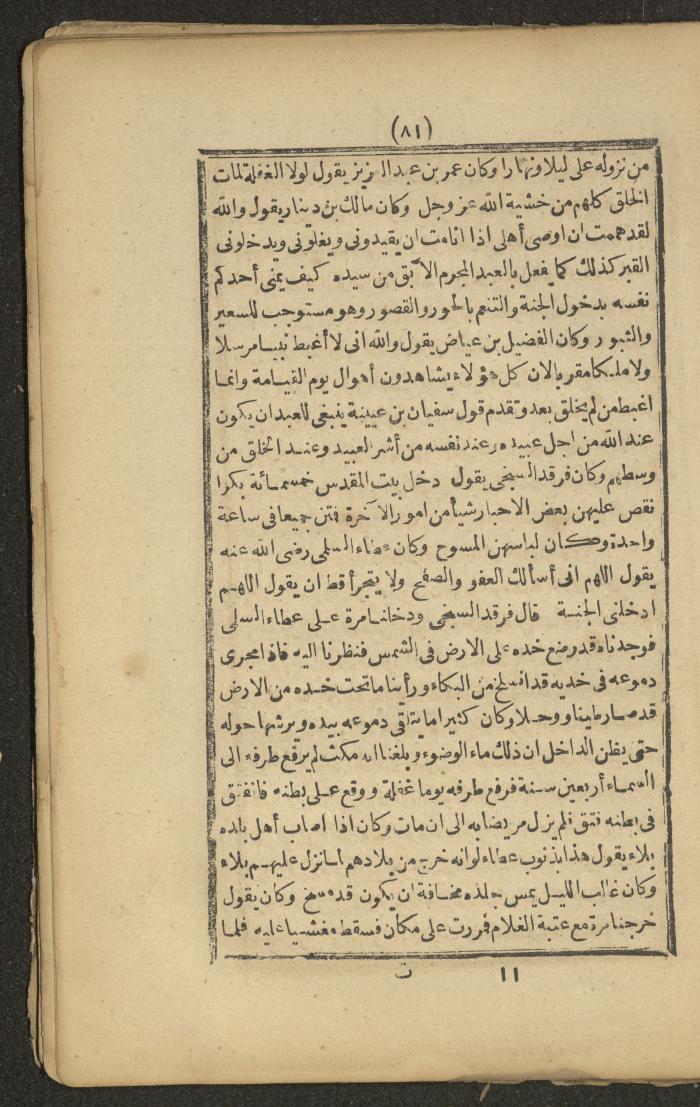 (٨١)
من نزوله على ليلا ونهارا وكان عمر بن عبد العزيز يقول لولا الغفلة لمات
الخلق كلهم من خشية الله عز وجل وكان مالك بن دينار يقول والله
لقد هممت ان اوصى أهلى اذا انامت ان يقيدونى ويغلونى ويدخلونى
القبر كذلك كما يفعل بالعبد المجرم الآبق من سيده كيف يمنى أحدكم
نفسه بدخول الجنة والتنعم بالحور والقصور وهو مستوجب للسعير
والثبور وكان الفضيل بن عياض يقول والله انى لا أغبط نبيا مرسلا
ولا ملكا مقربا لان كل هؤلاء يشاهدون أهوال يوم القيامة وانما
اغبط من لم يخلق بعد وتقدم قول سفيان بن عيينة ينبغى للعبد ان يكون
عند الله من اجل عبيده وعند نفسه من أشر العبيد وعند الخلق من
وسطهم وكان فرقد السبخى يقول دخل بيت المقدس خمسمائة بكرا
نقص عليهن بعض الاحبار شيأ من امور الآخرة فتن جميعا فى ساعة
واحدة وكان لباسهن المسوح وكان عطاء السلمى رضى الله عنه
يقول اللهم انى أسألك العفو والصفح ولا يتجرأ قط ان يقول اللهم
ادخلنى الجنة قال فرقد السبخى ودخلنا مرة على عطاء السلمى
فوجدناه قد وضع خده على الارض فى الشمس فنظرنا اليه فاذا مجرى
دموعه فى خديه قد انسلخ من البكاء ورأينا ما تحت خده من الارض
قد صار طينا ووحلا وكان كثيرا ما يتلقى دموعه بيده ويرشها حوله
حتى يظن الداخل ان ذلك ماء الوضوء وبلغنا انه مكث لم يرفع طرفه الى
السماء أربعين سنة فرفع طرفه يوما غفلة ووقع على بطنه فانفتق
فى بطنه فتق فلم يزل مريضا به الى ان مات وكان اذا اصاب أهل بلده
بلاء يقول هذا بذنوب عطاء لو انه خرج من بلادهم لما نزل عليهم بلاء
وكان غالب الليل يمس جلده مخافة ان يكون قد مسخ وكان يقول
خرجنا مرة مع عتبة الغلام فمررت على مكان فسقط مغشيا عليه فلما
١١ ت